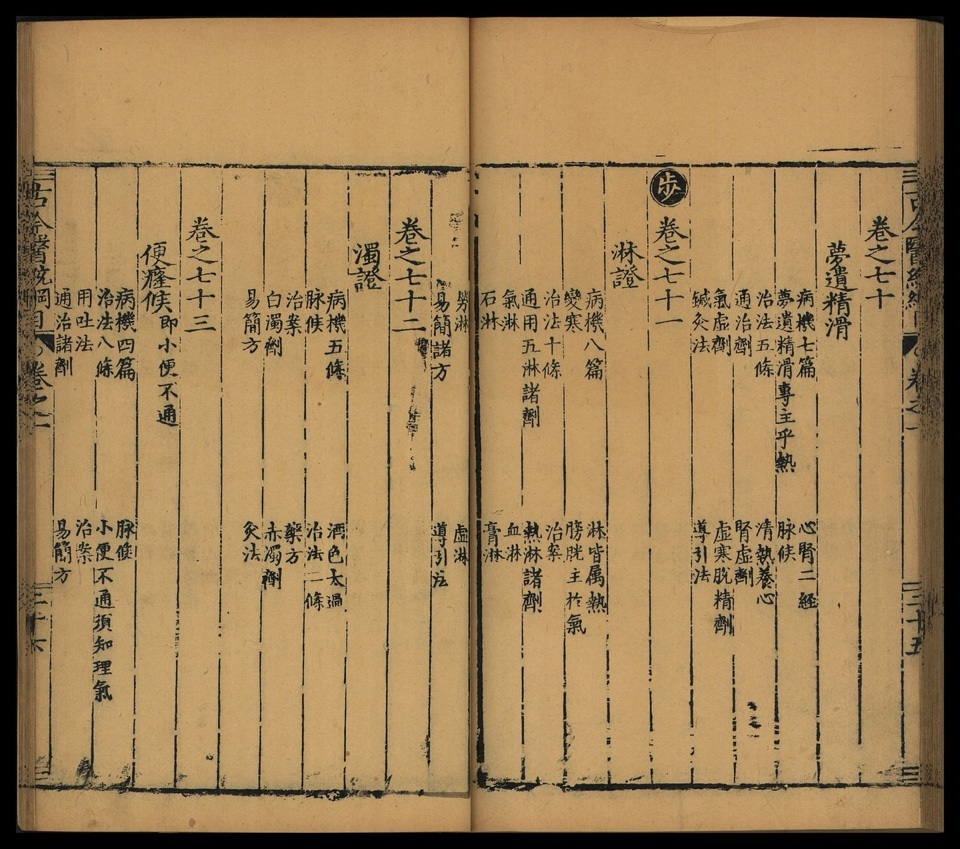 卷之七十
夢遺精滑
病機七篇 心腎二經
夢遺精滑專主乎熱 脉候
治法五條 清熱養心
通治劑 腎虛劑
氣虛劑 虛寒脱精劑
鍼灸法 導引法
歩 卷之七十一
淋證
病機八篇 淋皆属熱
變寒 膀胱主於氣
治法十條 治案
通用五淋諸劑 熱淋諸劑
氣淋 血淋
石淋 膏淋
卷之一
三十五
勞淋 虛淋
易簡諸方 導引法
卷之七十二
濁證
病機五條 酒色太過
脉候 治法二條
治案 藥方
白濁劑 赤濁劑
易簡方 灸法
卷之七十三
便癃候即小便不通
病機四篇 脉候
治法八條 小便不通須知理氣
用吐法 治案
通治諸劑 易簡方
古今醫統綱目 卷之一
三十六